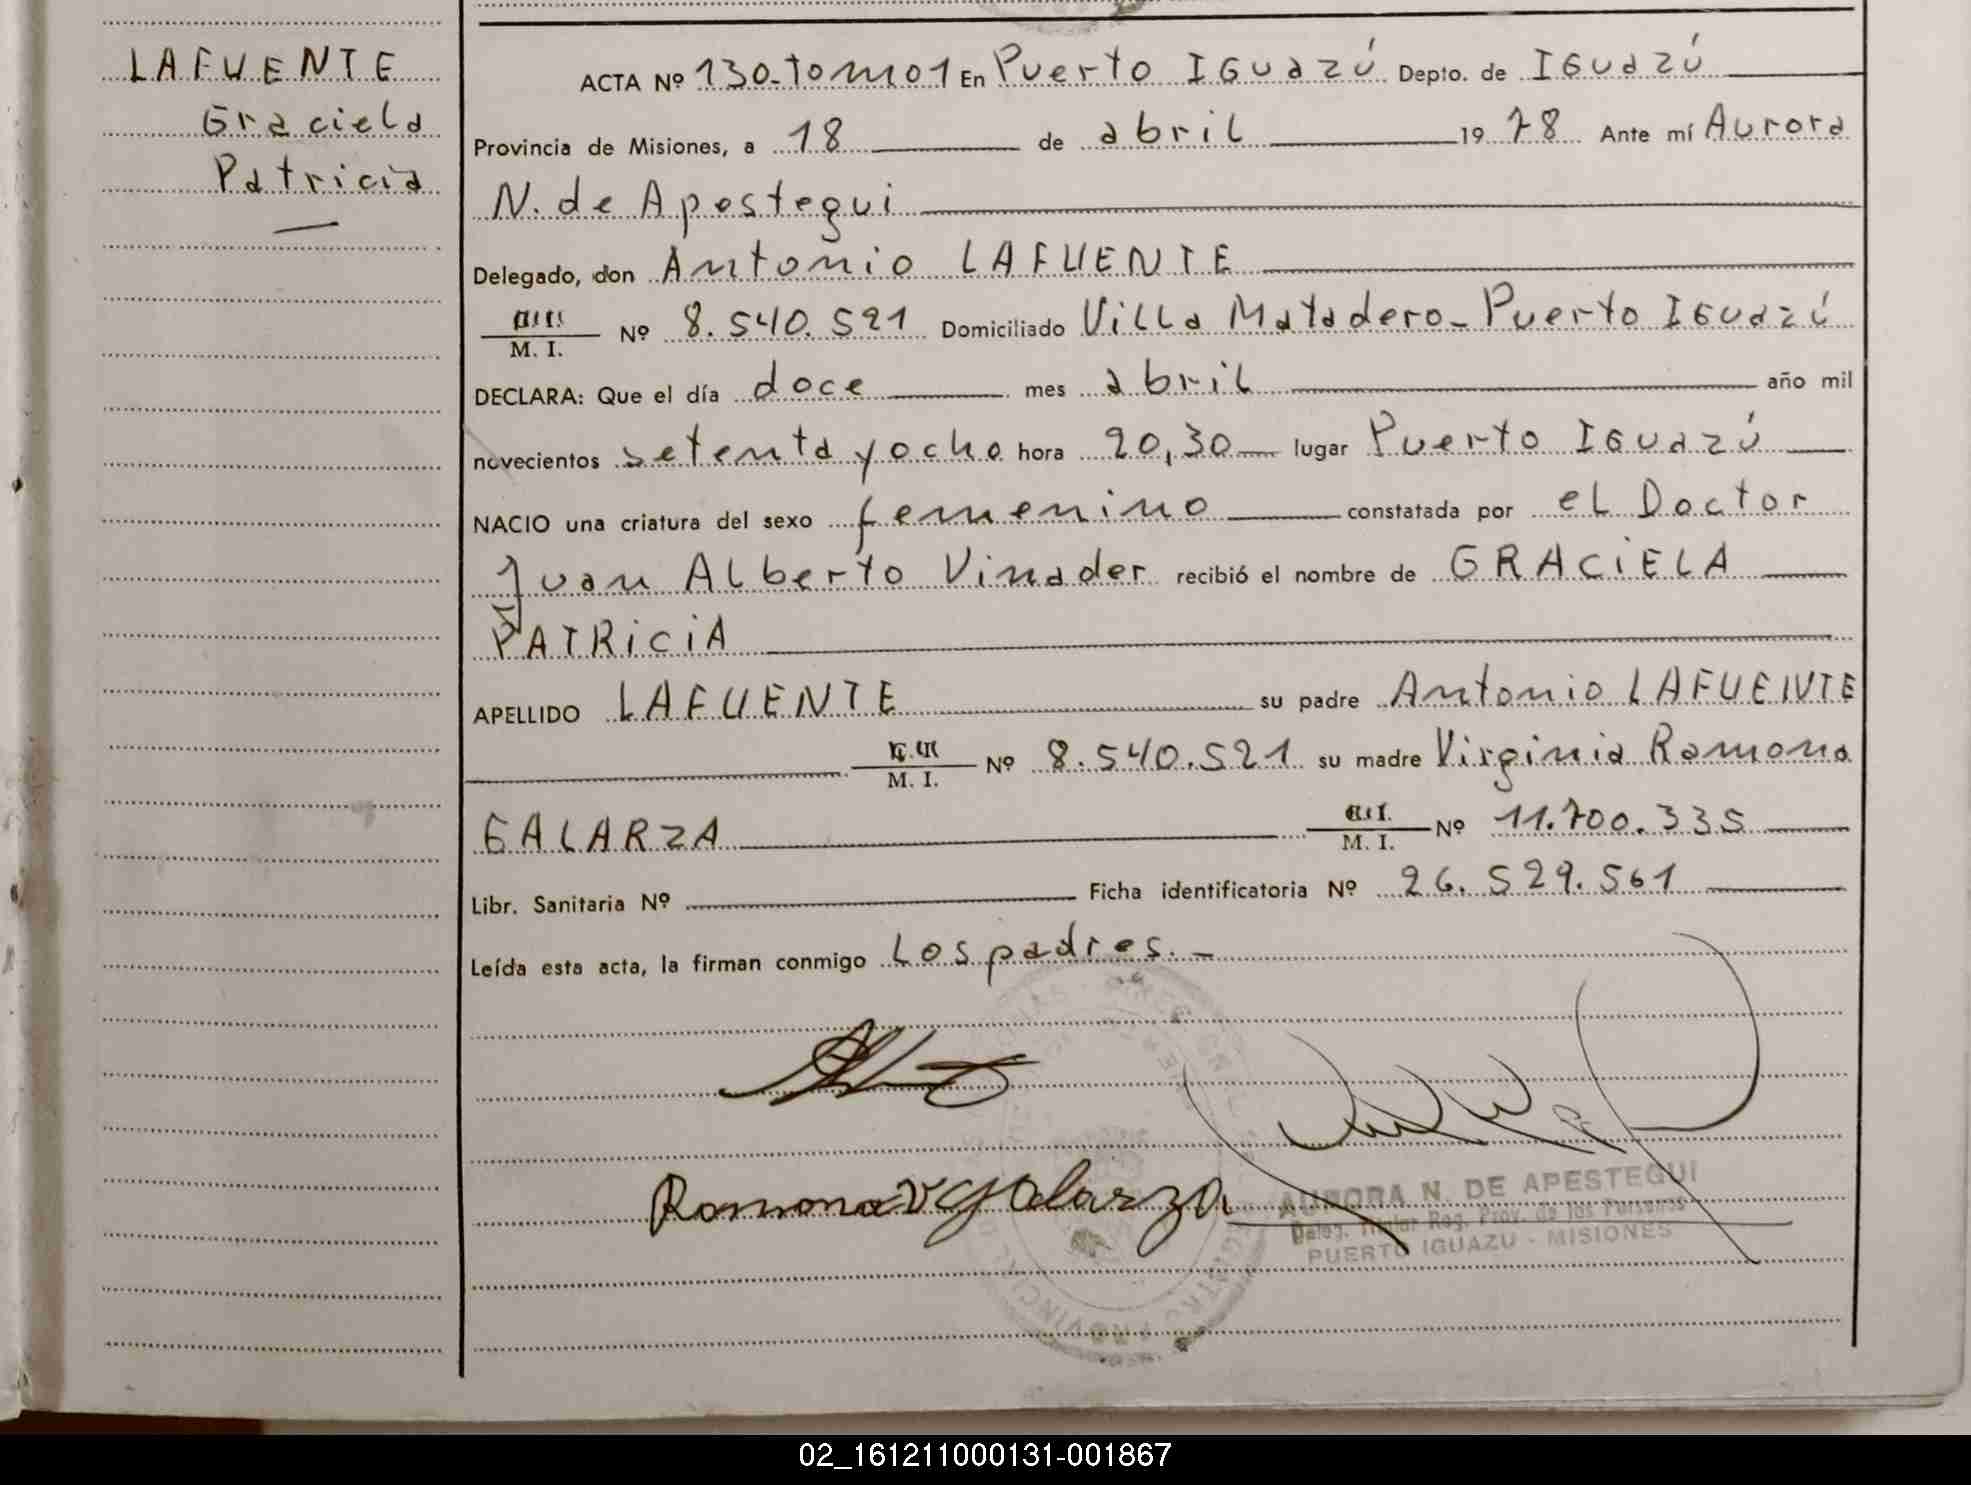 LAFUENTE
Graciela
Patricia
ACTA Nº 130-tomo1 En Puerto Iguazú Depto. de Iguazú
Provincia de Misiones, a 18 de abril 1978 Ante mí Aurora
N. de Apestegui
Delegado, don Antonio LAFUENTE
M. I. Nº 8.540.521 Domiciliado Villa Matadero-Puerto Iguazú
DECLARA: Que el día doce mes abril año mil
novecientos setenta y ocho hora 20,30 lugar Puerto Iguazú
NACIO una criatura del sexo femenino constatada por el Doctor
Juan Alberto Vinader recibió el nombre de GRACIELA
PATRICIA
APELLIDO LAFUENTE su padre Antonio LAFUENTE
M. I. Nº 8.540.521 su madre Virginia Ramona
GALARZA M. I. Nº 11.700.335
Libr. Sanitaria Nº Ficha identificatoria Nº 26.529.561
Leída esta acta, la firman conmigo Los padres.-
Ramona V Galarza
AURORA N. DE APESTEGUI
Deleg. Titular Reg. Prov. de las Personas
PUERTO IGUAZU - MISIONES
02_161211000131-001867